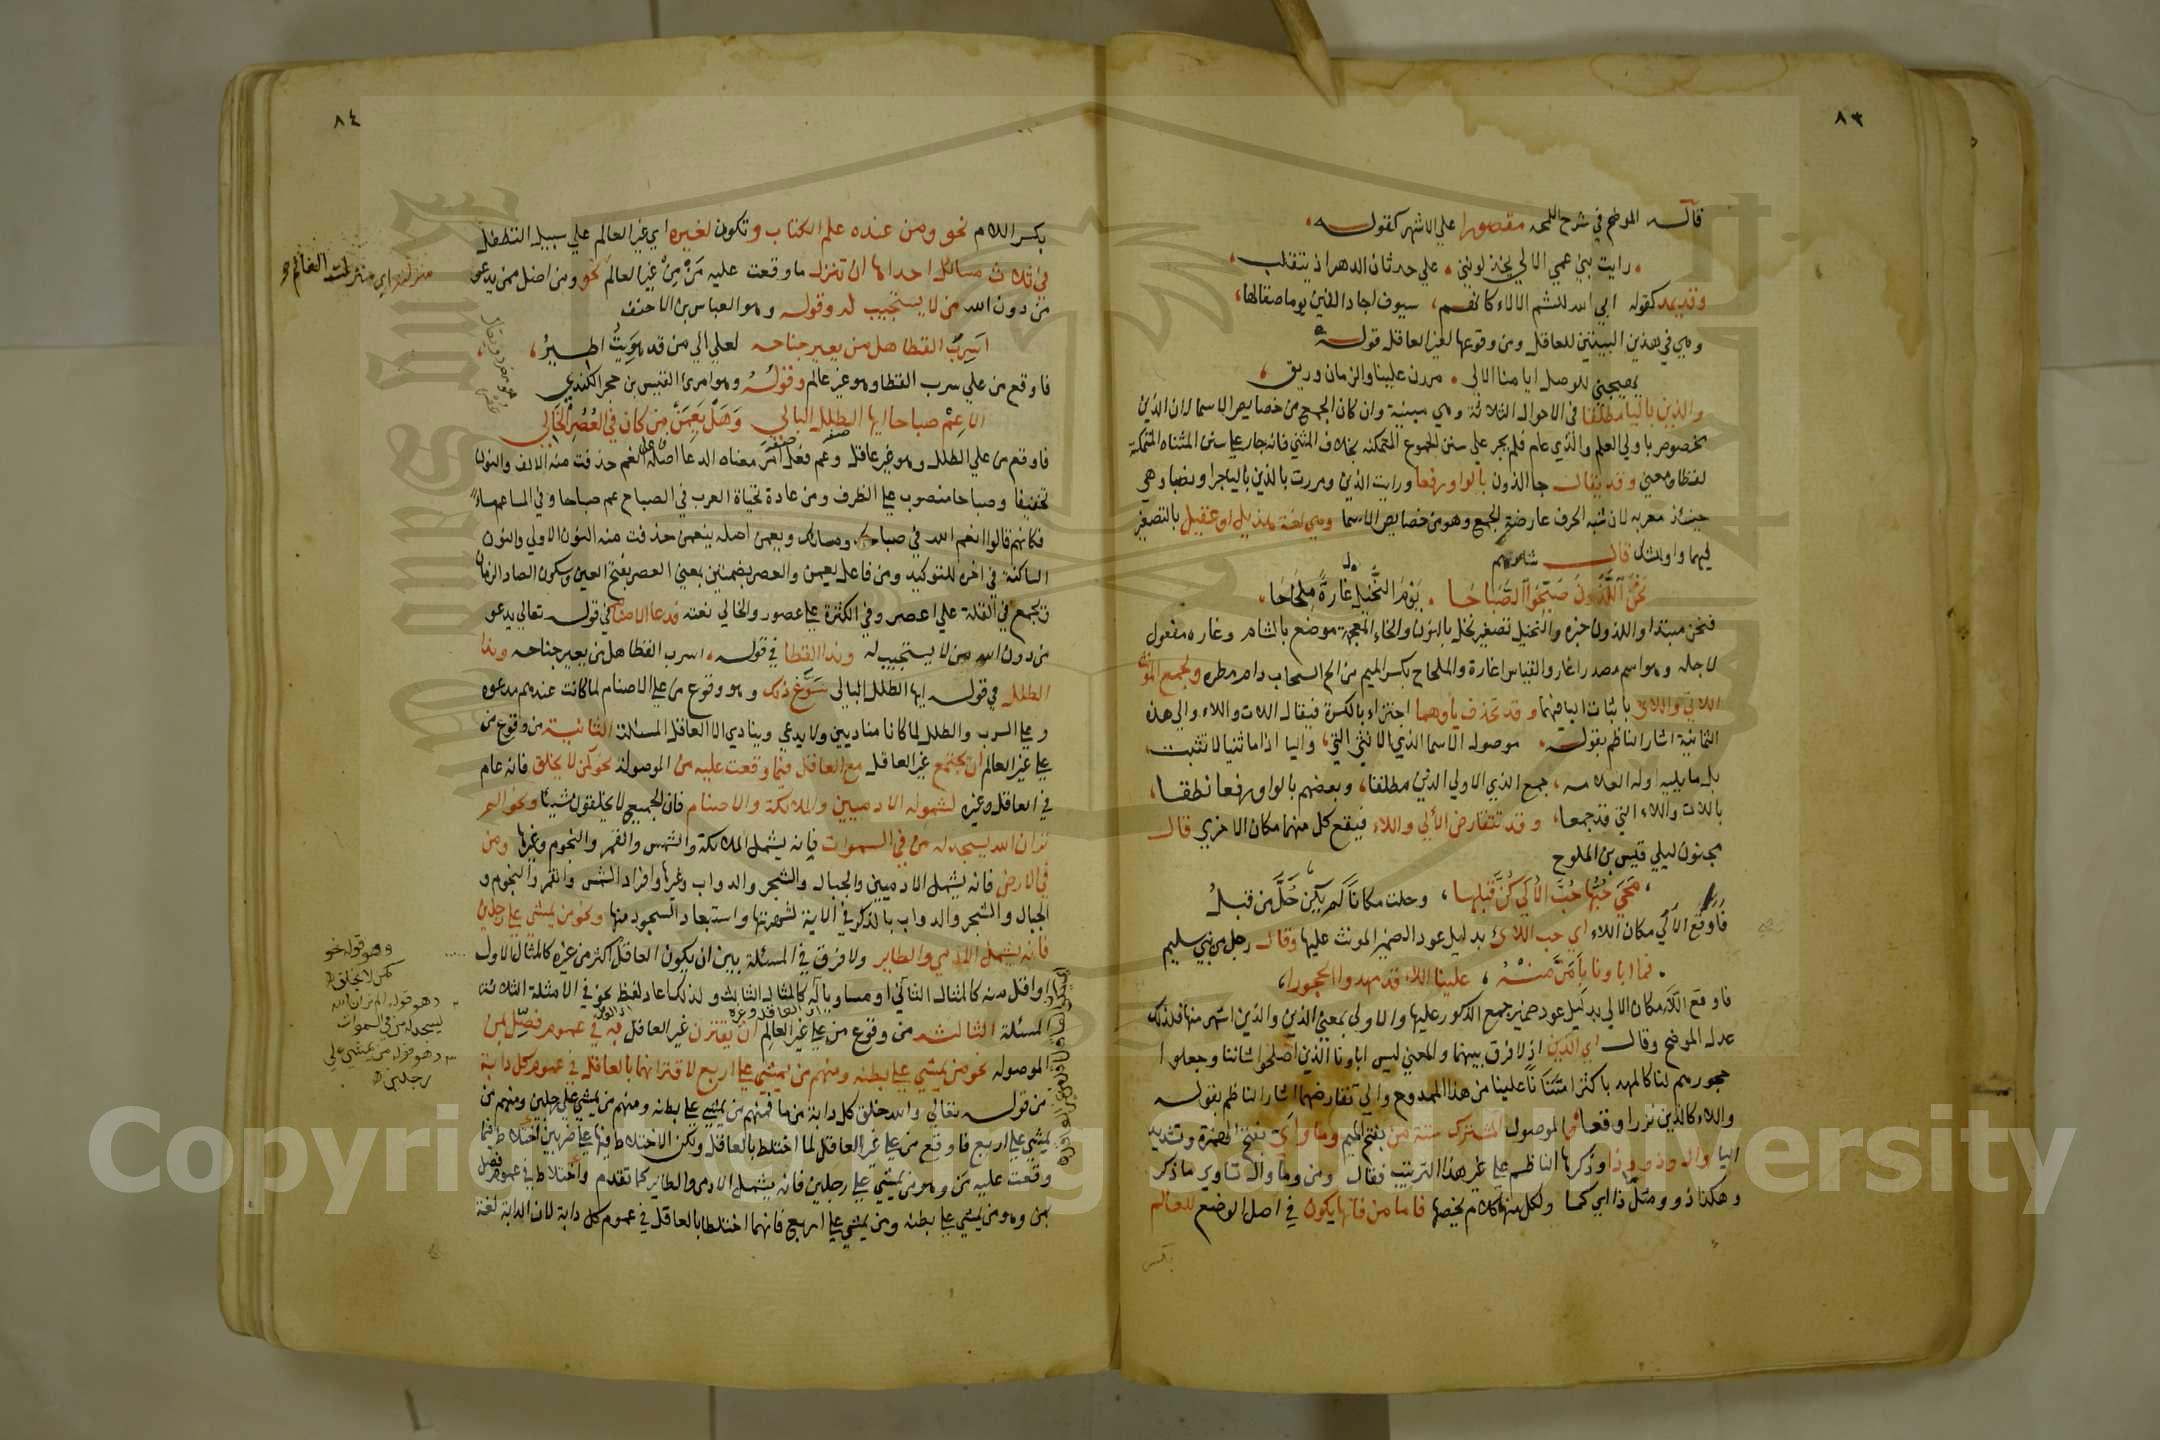 ٨٣
قاله الموضح في شرح اللمحة مقصورا علي الاشهر كقوله
رايت بني عمي الالي يخذلونني علي حدثان الدهر اذ يتقلب
وقد يمد كقوله ابي الله للشم الالاء كانهم سيوف اجاد القين يوما صقالها
وهي في هذين البيتين للعاقل ومن وقوعها لغير العاقل قوله
يهيجني للوصل ايامنا الالي مررن علينا والزمان وريق
والذين باليا مطلقا في الاحوال الثلاثة وهي مبنية وان كان الجمع من خصايص الاسما لان الذين
مخصوص باولي العلم والذي عام فلم يجر علي سنن الجموع المتمكنة بخلاف المثني فانه جار علي سنن المثناه المتمكنة
لفظا ومعني وقد يقال جا الذون بالواو رفعا ورايت الذين ومررت بالذين باليا جرا ونصبا وهي
حينئذ معربه لان شبه الحرف عارضه الجمع وهو من خصايص الاسما وهي لغة هذيل او عقيل بالتصغير
فيهما واو للشك قال شاعرهم
نحن اللذون صبحوا الصباحا يوم النخيل غارة ملحاحا
فنحن مبتدا واللذون خبره والنخيل تصغير نخل بالنون والخاء المعجمة موضع بالشام وغاره مفعول
لاجله وهو اسم مصدر اغار والقياس اغارة والملحاح بكسر الميم من الح السحاب دام مطره ولجمع المونث
اللاتي واللائي باثبات اليا فيهما وقد تحذف ياوهما اجتزاء بالكسرة فيقال اللات واللاء والي هذه
الثمانية اشار الناظم بقوله موصول الاسما الذي الانثي التي واليا اذا ما ثنيا لا تثبت
بل ما يليه اوله العلامه جمع الذي الاولي الذين مطلقا وبعضهم بالواو رفعا نطقا
باللات واللاء التي قد جمعا وقد تتقارض الألي واللاء فيقع كل منهما مكان الاخري قال
مجنون ليلي قيس بن الملوح
محي حبها حب الألي كن قبلها وحلت مكانا لم يكن حل من قبل
فاوقع الألي مكان اللاء اي حب اللائي بدليل عود الضمير المونث عليها وقال رجل من بني سليم
فما اباونا بامن منه علينا اللاء قد مهدوا الحجورا
فاوقع اللاء مكان الالي بدليل عود ضمير جمع الذكور عليها والاولي بمعني الذين والذين اشهر منها فلذلك
عدل الموضح وقال اي الذين اذ لا فرق بينهما والمعني ليس اباونا الذين اصلحوا شاننا وجعلوا
حجورهم لنا كالمهد باكثر امتنانا علينا من هذا الممدوح والي تقارضهما اشار الناظم بقوله
واللاء كالذين نزرا وقعا فما الموصول المشترك ستة من بفتح الميم وما واي بفتح الهمزة وتشديد
اليا وال وذو وذا وذكرها الناظم علي غير هذا الترتيب فقال ومن وما وال تساوي ما ذكر
وهكذا ذو ومثل ذا اي كما ولكل منها كلام يخصها فاما من فانها يكون في اصل الوضع للعالم
بكسر
٨٤
بكسر اللام نحو ومن عنده علم الكتاب وتكون لغيره اي غير العالم علي سبيل التطفل
في ثلاث مسائل احداها ان تنزل ما وقعت عليه من من غير العالم نحو ومن اضل ممن يدعو
من دون الله من لا يستجيب له وقوله وهو العباس بن الاحنف
اسرب القطا هل من يعير جناحه لعلي الي من قد هويت اطير
فاوقع من علي سرب القطا وهو غير عالم وقوله وهو امرئ القيس بن حجر الكندي
الا عم صباحا ايها الطلل البالي وهل يعمن من كان في العصر الخالي
فاوقع من علي الطلل وهو غير عاقل وعم فعل امر معناه الدعا اصله انعم حذفت منه الالف والنون
تخفيفا وصباحا منصوب علي الظرف ومن عادة تحياة العرب في الصباح عم صباحا وفي المسا عم مساءً
فكانهم قالوا انعم الله في صباحك ومسائك ويعمن اصله ينعمن حذفت منه النون الاولي والنون
الساكنة في اخره للتوكيد ومن فاعل يعمن والعصر بضمتين بمعني العصر بفتح العين وسكون الصاد الزمان
وتجمع في القلة علي اعصر وفي الكثرة علي عصور والخالي نعته فدعا الاصنام في قوله تعالي يدعو
من دون الله من لا يستجيب له وندا القطا في قوله اسرب القطا هل من يعير جناحه وندا
الطلل في قوله ايها الطلل البالي سوغ ذلك وهو وقوع من علي الاصنام لما كانت عندهم مدعوه
وعلي السرب والطلل لما كانا مناديين ولا يدعي وينادي الا العاقل المسئلة الثانية من وقوع من
علي غير العالم ان يجتمع غير العاقل مع العاقل فيما وقعت عليه من الموصولة نحو كمن لا يخلق فانه عام
في العاقل وغيره لشموله الادميين والملائكة والاصنام فان الجميع لا يخلقون شيئا ونحو الم
تر ان الله يسجد له من في السموات فانه يشمل الملائكة والشمس والقمر والنجوم وغيرها ومن
في الارض فانه يشمل الادميين والجبال والشجر والدواب وغيرها وافراد الشمس والقمر والنجوم و
الجبال والشجر والدواب بالذكر في الاية لشهرتها واستبعاد السجود منها ونحو من يمشي علي رجلين
فانه يشمل الادمي والطاير ولا فرق في المسئلة بين ان يكون العاقل اكثر من غيره كالمثال الاول
او اقل منه كالمثال الثاني او مساويا له كالمثال الثالث ولذلك اعاد لفظ نحو في الامثلة الثلاثة
المسئلة الثالثة من وقوع من علي غير العالم ان يقترن غير العاقل به في عموم فصل بمن
الموصوله نحو من يمشي علي بطنه ومنهم من يمشي علي اربع لاقترانهما بالعاقل في عموم كل دابة
من قوله تعالي والله خلق كل دابة من ما فمنهم من يمشي علي بطنه ومنهم من يمشي علي رجلين ومنهم من
يمشي علي اربع فاوقع من علي غير العاقل لما اختلط بالعاقل ولكن الاختلاط فيها علي ضربين اختلاط فيما
وقعت عليه من وهو من يمشي علي رجلين فانه يشمل الادمي والطاير كما تقدم واختلاط في عموم فصل
بمن وهو من يمشي علي بطنه ومن يمشي علي اربع فانهما اختلطا بالعاقل في عموم كل دابة لان الدابة لغة
وهو قوله نحو
كمن لا يخلق
وهو قوله الم تر ان الله
يسجد له من في السموات
وهو قوله من يمشي علي
رجلين
Copyright © King Saud University